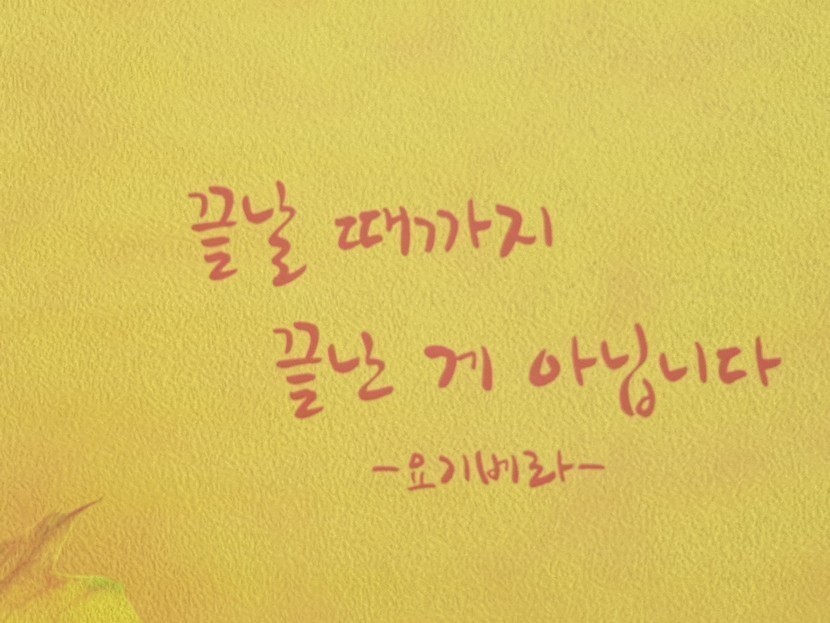 끝날 때까지
끝난 게 아닙니다
-요기베라-